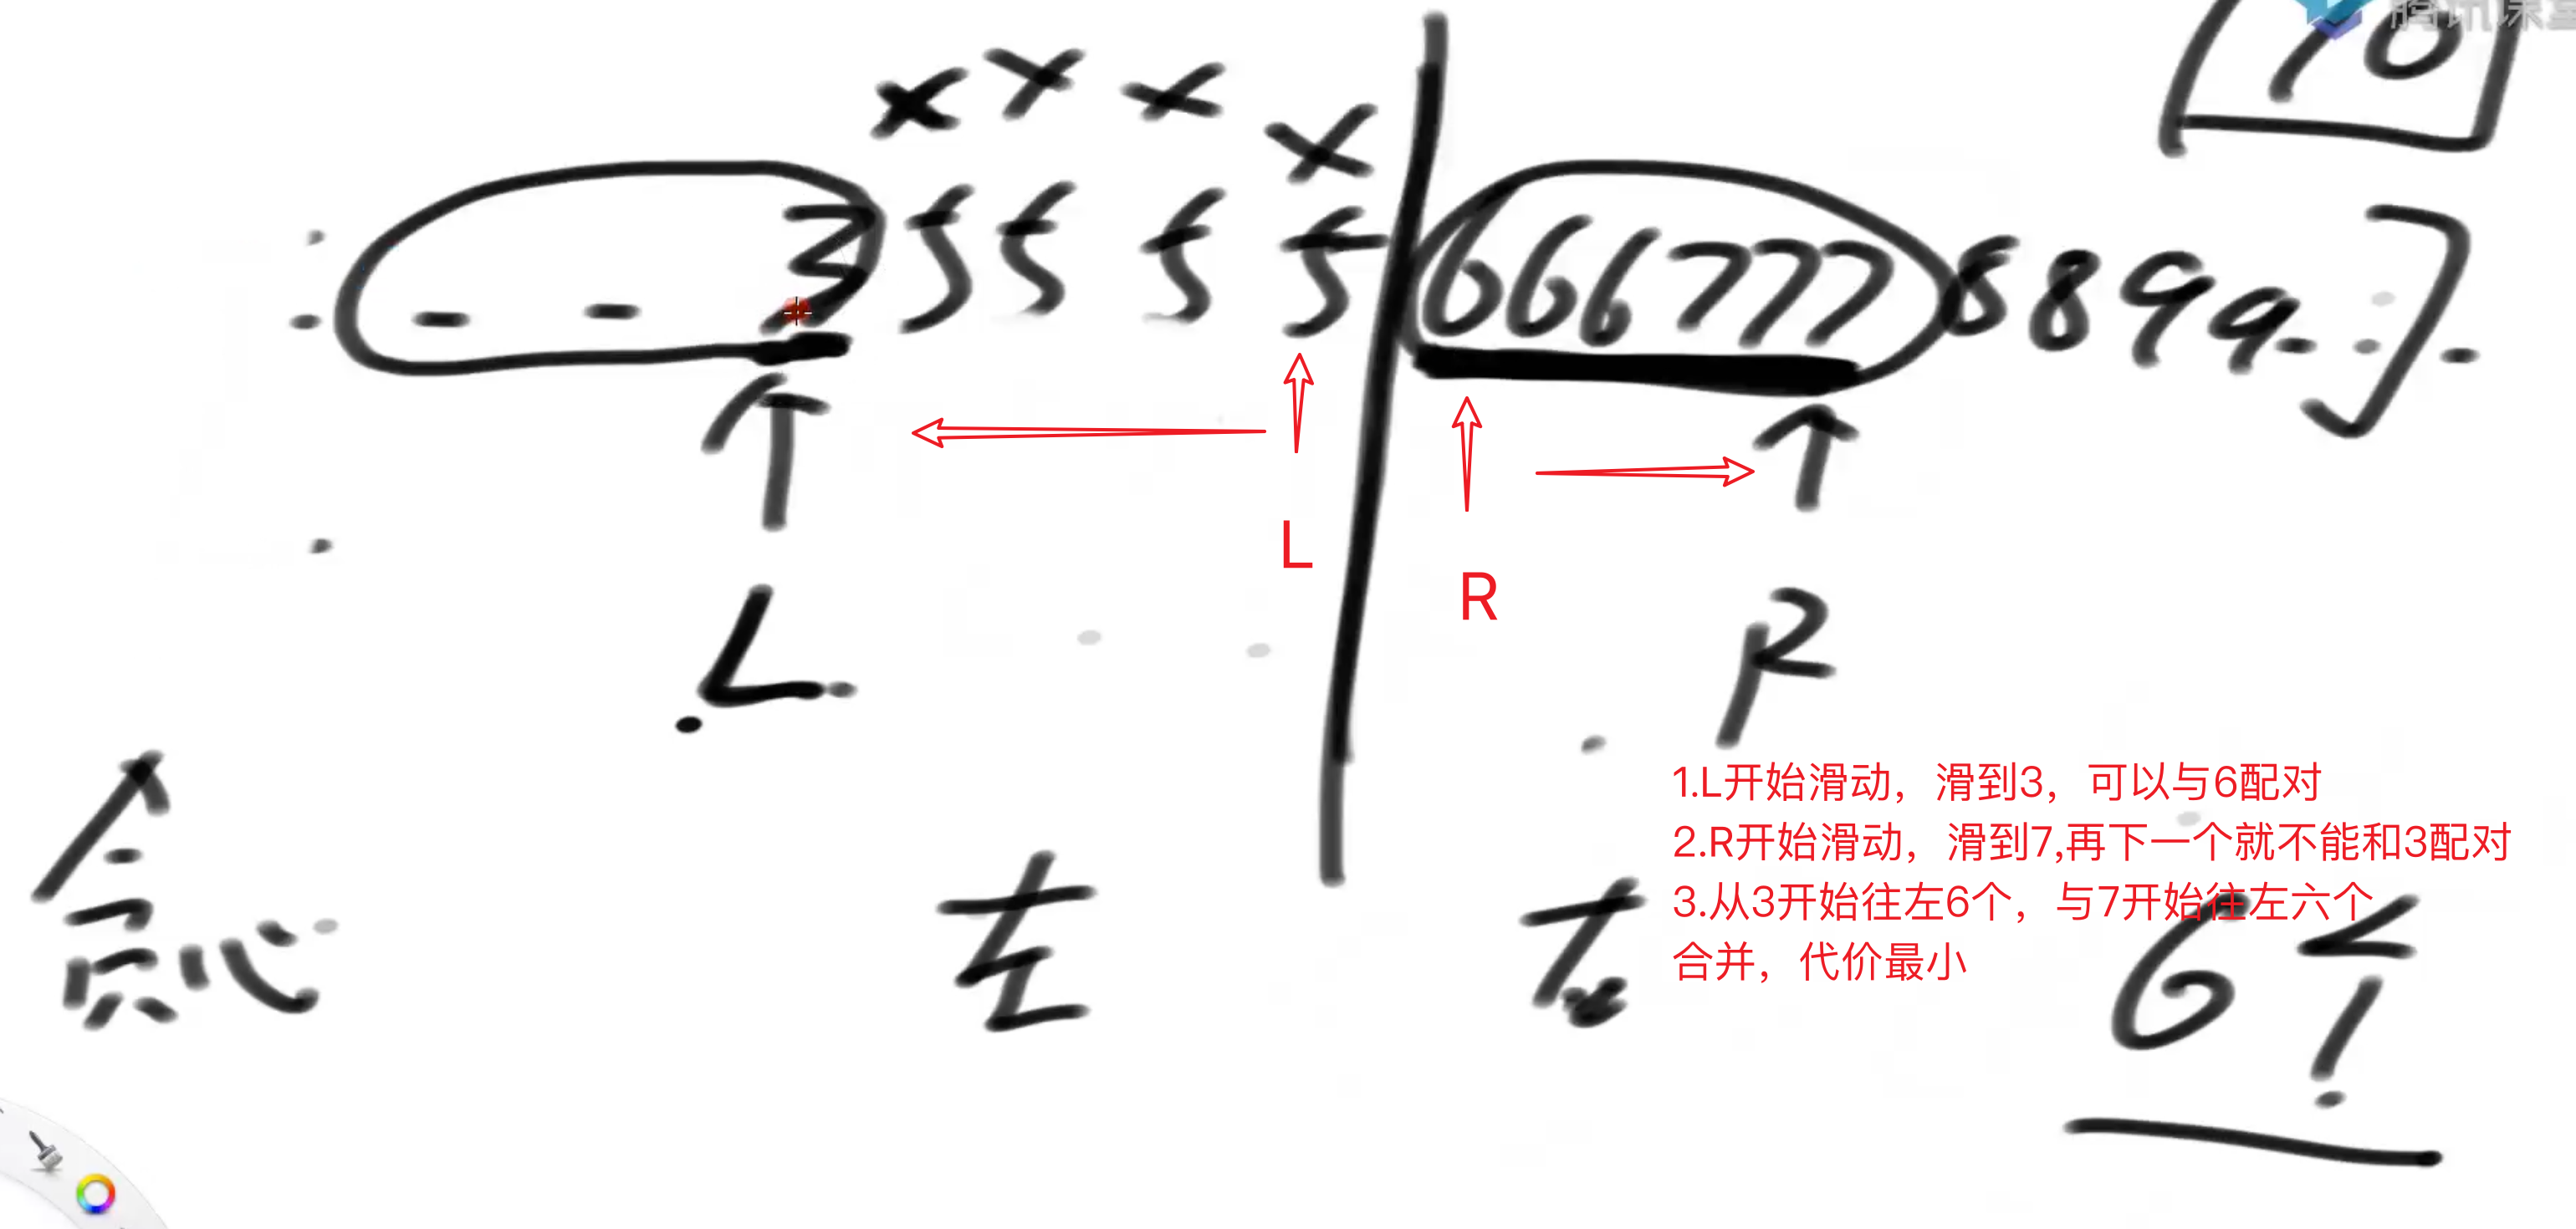 腾讯课堂
10
× × × ×
3 5 5 5 5 6 6 6 7 7 7 8 8 9 9
L
R
L R
1.L开始滑动，滑到3，可以与6配对
2.R开始滑动，滑到7,再下一个就不能和3配对
3.从3开始往左6个，与7开始往左六个
合并，代价最小
贪心 左 右 6个